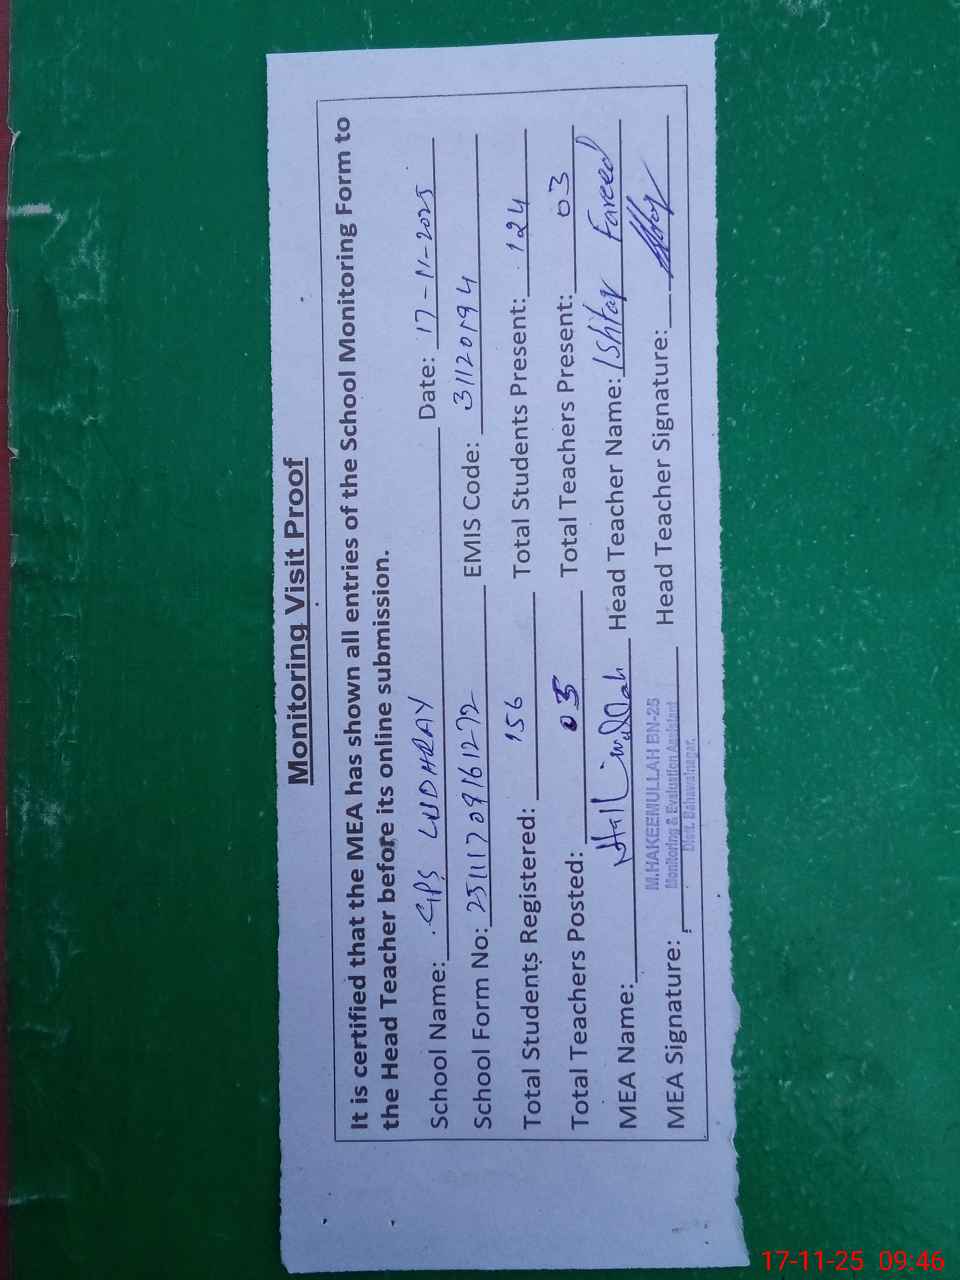 Monitoring Visit Proof
It is certified that the MEA has shown all entries of the School Monitoring Form to
the Head Teacher before its online submission.
School Name: GPS LUDHRAY Date: 17-11-2025
School Form No: 25111709161272 EMIS Code: 31120194
Total Students Registered: 156 Total Students Present: 124
Total Teachers Posted: 03 Total Teachers Present: 03
MEA Name: Head Teacher Name: Ishfaq Fareed
M.HAKEEMULLAH BN-25
Monitoring & Evaluation Assistant
Distt. Bahawalnagar.
MEA Signature: Head Teacher Signature:
17-11-25 09:46